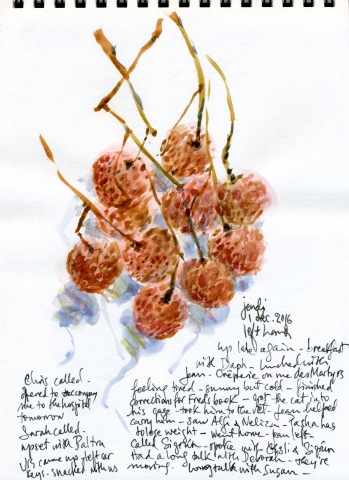 1 dec. 2016
left hand
up late again - breakfast
with Daph - lunched with
Jean - Crêperie on rue des Martyrs
feeling tired - sunny but cold - finished
corrections for Fred's book - got the cat into
his cage - took him to the vet - Jean helped
carry him - saw Alf & - Pasha has
to lose weight - went home - Jean left -
called - spoke with & 
had a long talk with Deborah - they're
moving. long talk with Susan -
Chris called -
offered to accompany
me to the hospital
tomorrow
Sarah called -
upset with
came up - left car
keys - snacked with us